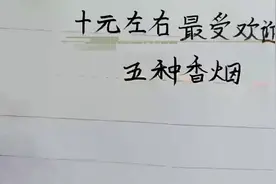 十元左右最受欢迎
五种香烟